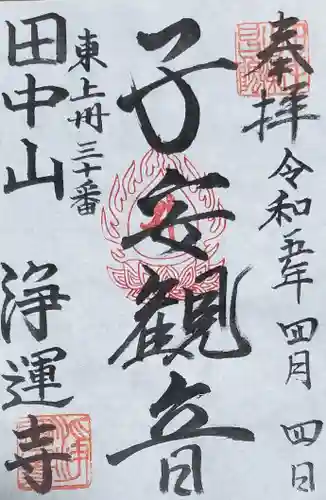 奉拝
令和五年 四月 四日
子安観音
東上州三十番
田中山
浄運寺